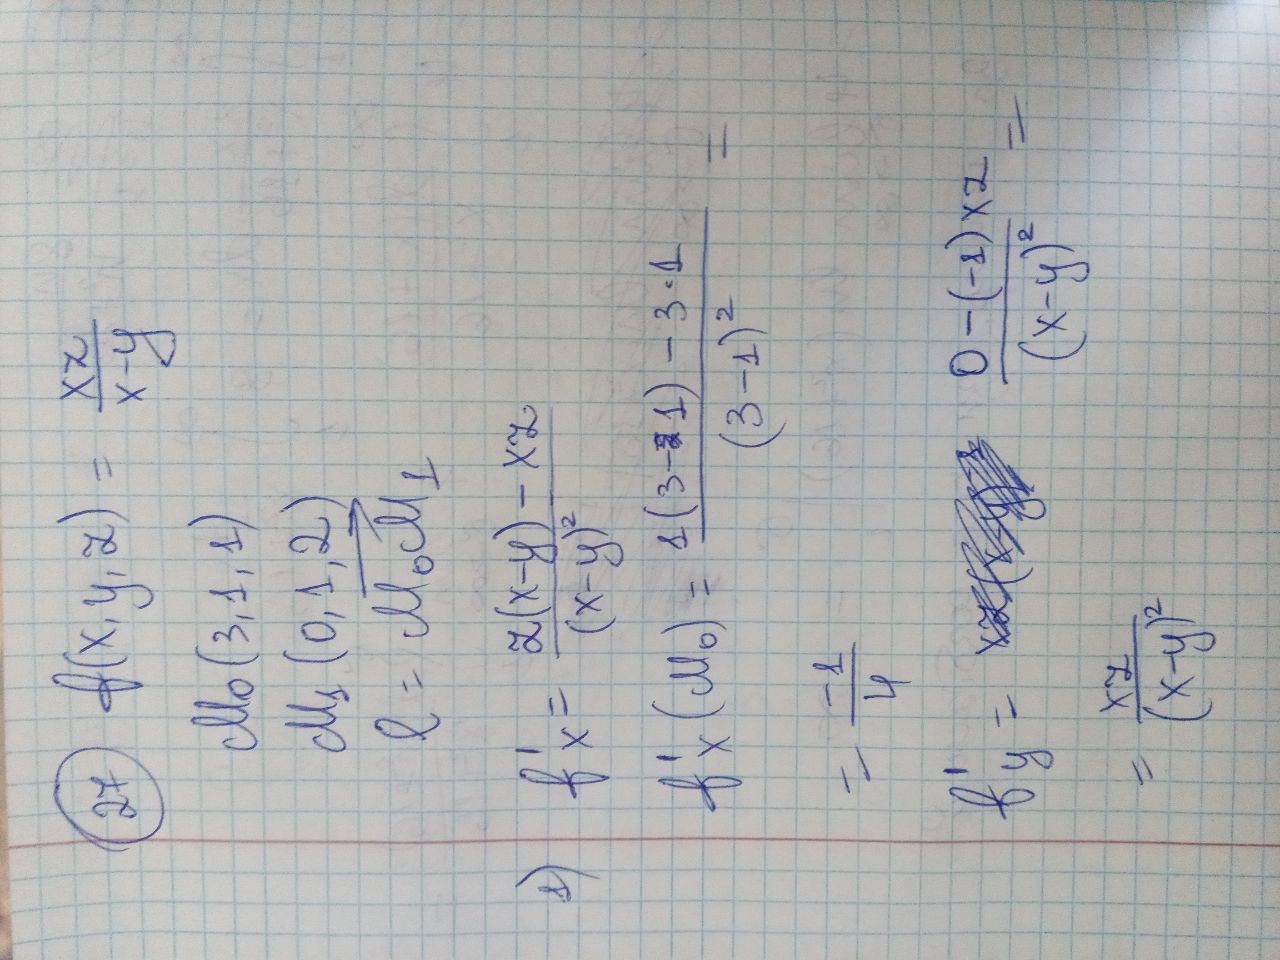 27 f(x, y, z) = xz/(x-y)
M₀(3, 1, 1)
M₁(0, 1, 2)
l = M₀M₁
1) f'x = (z(x-y) - xz)/(x-y)²
f'x(M₀) = (1(3-1) - 3·1)/(3-1)² =
= -1/4
f'y = (0-(-1)xz)/(x-y)² =
= xz/(x-y)²